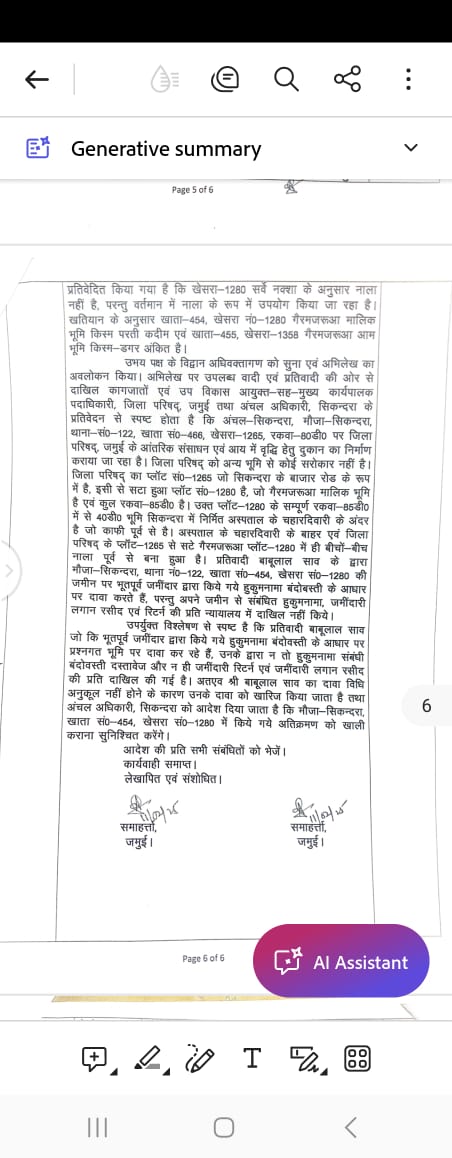 Generative summary
Page 5 of 6
प्रतिवेदित किया गया है कि खेसरा–1280 सर्वे नक्शा के अनुसार नाला
नहीं है, परन्तु वर्तमान में नाला के रूप में उपयोग किया जा रहा है।
खतियान के अनुसार खाता–454, खेसरा नं०–1280 गैरमजरूआ मालिक
भूमि किस्म परती कदीम एवं खाता–455, खेसरा–1358 गैरमजरूआ आम
भूमि किस्म–डगर अंकित है।
उभय पक्ष के विद्वान अधिवक्तागण को सुना एवं अभिलेख का
अवलोकन किया। अभिलेख पर उपलब्ध वादी एवं प्रतिवादी की ओर से
दाखिल कागजातों एवं उप विकास आयुक्त–सह–मुख्य कार्यपालक
पदाधिकारी, जिला परिषद्, जमुई तथा अंचल अधिकारी, सिकन्दरा के
प्रतिवेदन से स्पष्ट होता है कि अंचल–सिकन्दरा, मौजा–सिकन्दरा,
थाना–सं०–122, खाता सं०–466, खेसरा–1265, रकवा–80डी० पर जिला
परिषद्, जमुई के आंतरिक संसाधन एवं आय में वृद्धि हेतु दुकान का निर्माण
कराया जा रहा है। जिला परिषद् को अन्य भूमि से कोई सरोकार नहीं है।
जिला परिषद् का प्लॉट सं०–1265 जो सिकन्दरा के बाजार रोड के रूप
में है, इसी से सटा हुआ प्लॉट सं०–1280 है, जो गैरमजरूआ मालिक भूमि
है एवं कुल रकवा–85डी० है। उक्त प्लॉट–1280 के सम्पूर्ण रकवा–85डी०
में से 40डी० भूमि सिकन्दरा में निर्मित अस्पताल के चहारदिवारी के अंदर
है जो काफी पूर्व से है। अस्पताल के चहारदिवारी के बाहर एवं जिला
परिषद् के प्लॉट–1265 से सटे गैरमजरूआ प्लॉट–1280 में ही बीचों–बीच
नाला पूर्व से बना हुआ है। प्रतिवादी बाबूलाल साव के द्वारा
मौजा–सिकन्दरा, थाना नं०–122, खाता सं०–454, खेसरा सं०–1280 की
जमीन पर भूतपूर्व जमींदार द्वारा किये गये हुकुमनामा बंदोबस्ती के आधार
पर दावा करते हैं, परन्तु अपने जमीन से संबंधित हुकुमनामा, जमींदारी
लगान रसीद एवं रिटर्न की प्रति न्यायालय में दाखिल नहीं किये।
उपर्युक्त विश्लेषण से स्पष्ट है कि प्रतिवादी बाबूलाल साव
जो कि भूतपूर्व जमींदार द्वारा किये गये हुकुमनामा बंदोवस्ती के आधार पर
प्रश्नगत भूमि पर दावा कर रहे हैं, उनके द्वारा न तो हुकुमनामा संबंधी
बंदोवस्ती दस्तावेज और न ही जमींदारी रिटर्न एवं जमींदारी लगान रसीद
की प्रति दाखिल की गई है। अतएव श्री बाबूलाल साव का दावा विधि
अनुकूल नहीं होने के कारण उनके दावा को खारिज किया जाता है तथा
अंचल अधिकारी, सिकन्दरा को आदेश दिया जाता है कि मौजा–सिकन्दरा,
खाता सं०–454, खेसरा सं०–1280 में किये गये अतिक्रमण को खाली
कराना सुनिश्चित करेंगे।
आदेश की प्रति सभी संबंधितों को भेजें।
कार्यवाही समाप्त।
लेखापित एवं संशोधित।
11/02/25 11/02/25
समाहर्त्ता, समाहर्त्ता,
जमुई। जमुई।
6
Page 6 of 6
AI Assistant
T